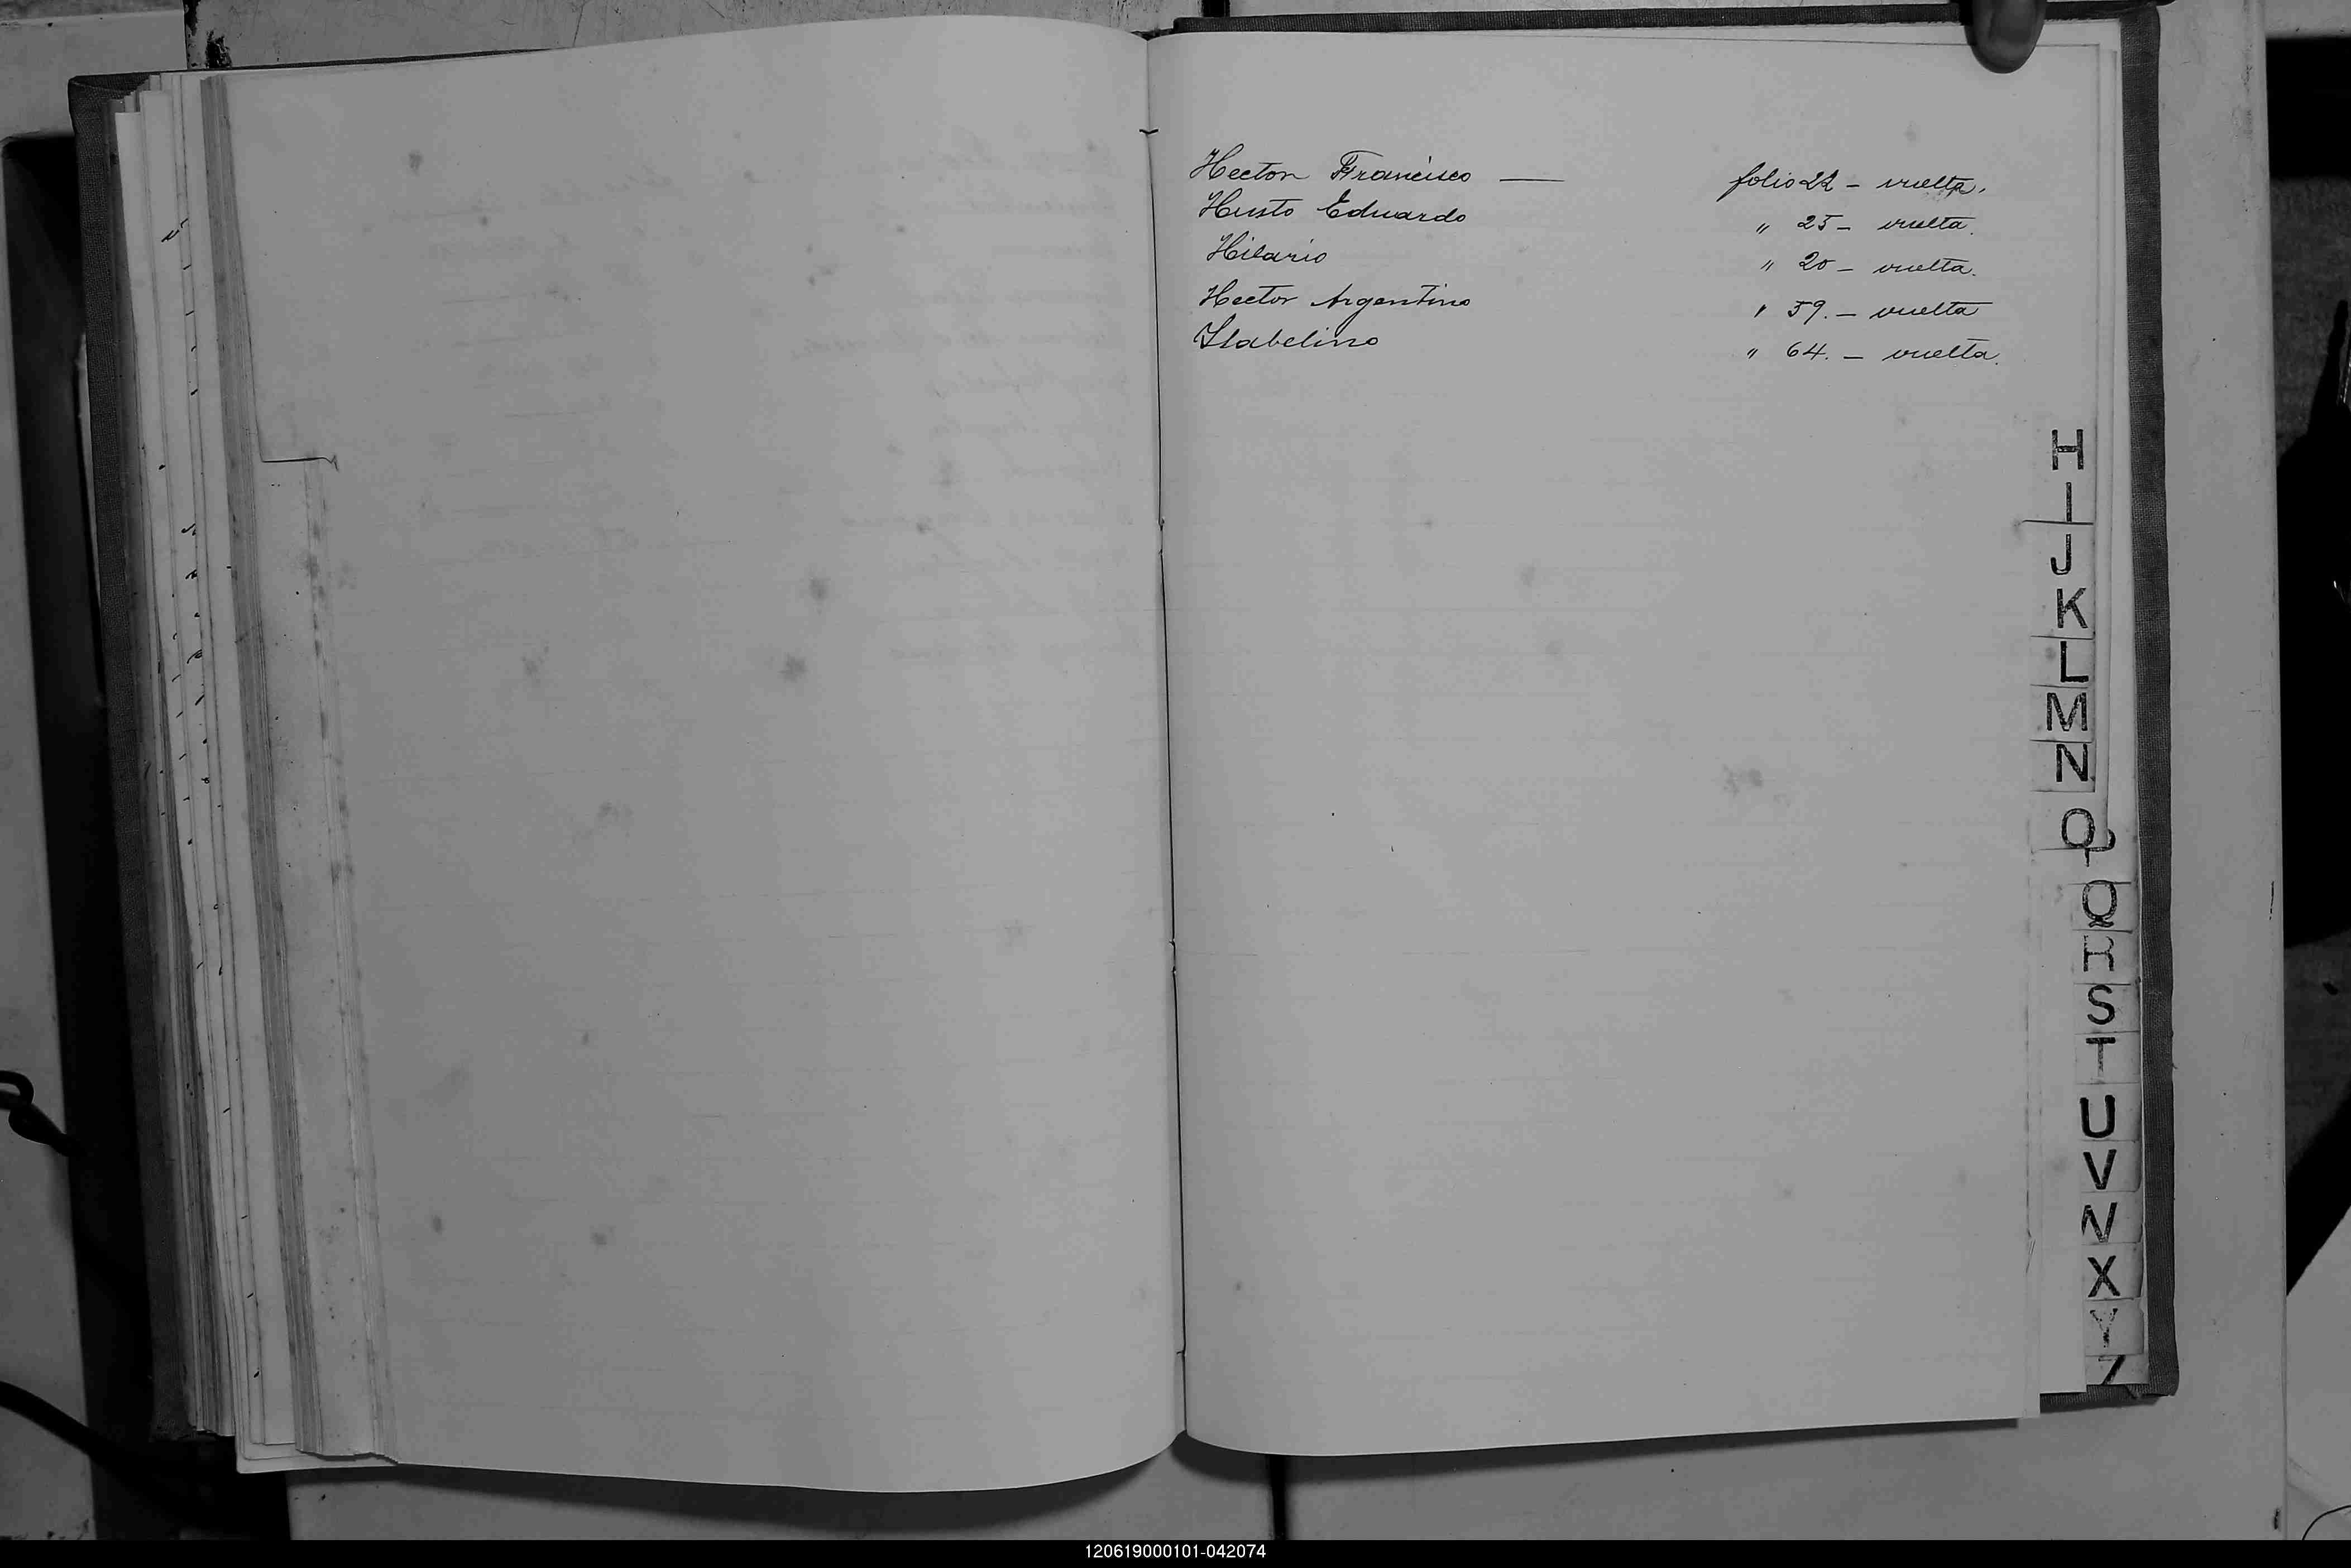 Hector Francisco — folio 22 - vuelta.
Husto Eduardo " 25 - vuelta.
Hilario " 20 - vuelta.
Hector Argentino " 59. - vuelta
" 64. - vuelta.
H
I
J
K
L
M
N
O
P
Q
R
S
T
U
V
X
Y
Z
120619000101-042074